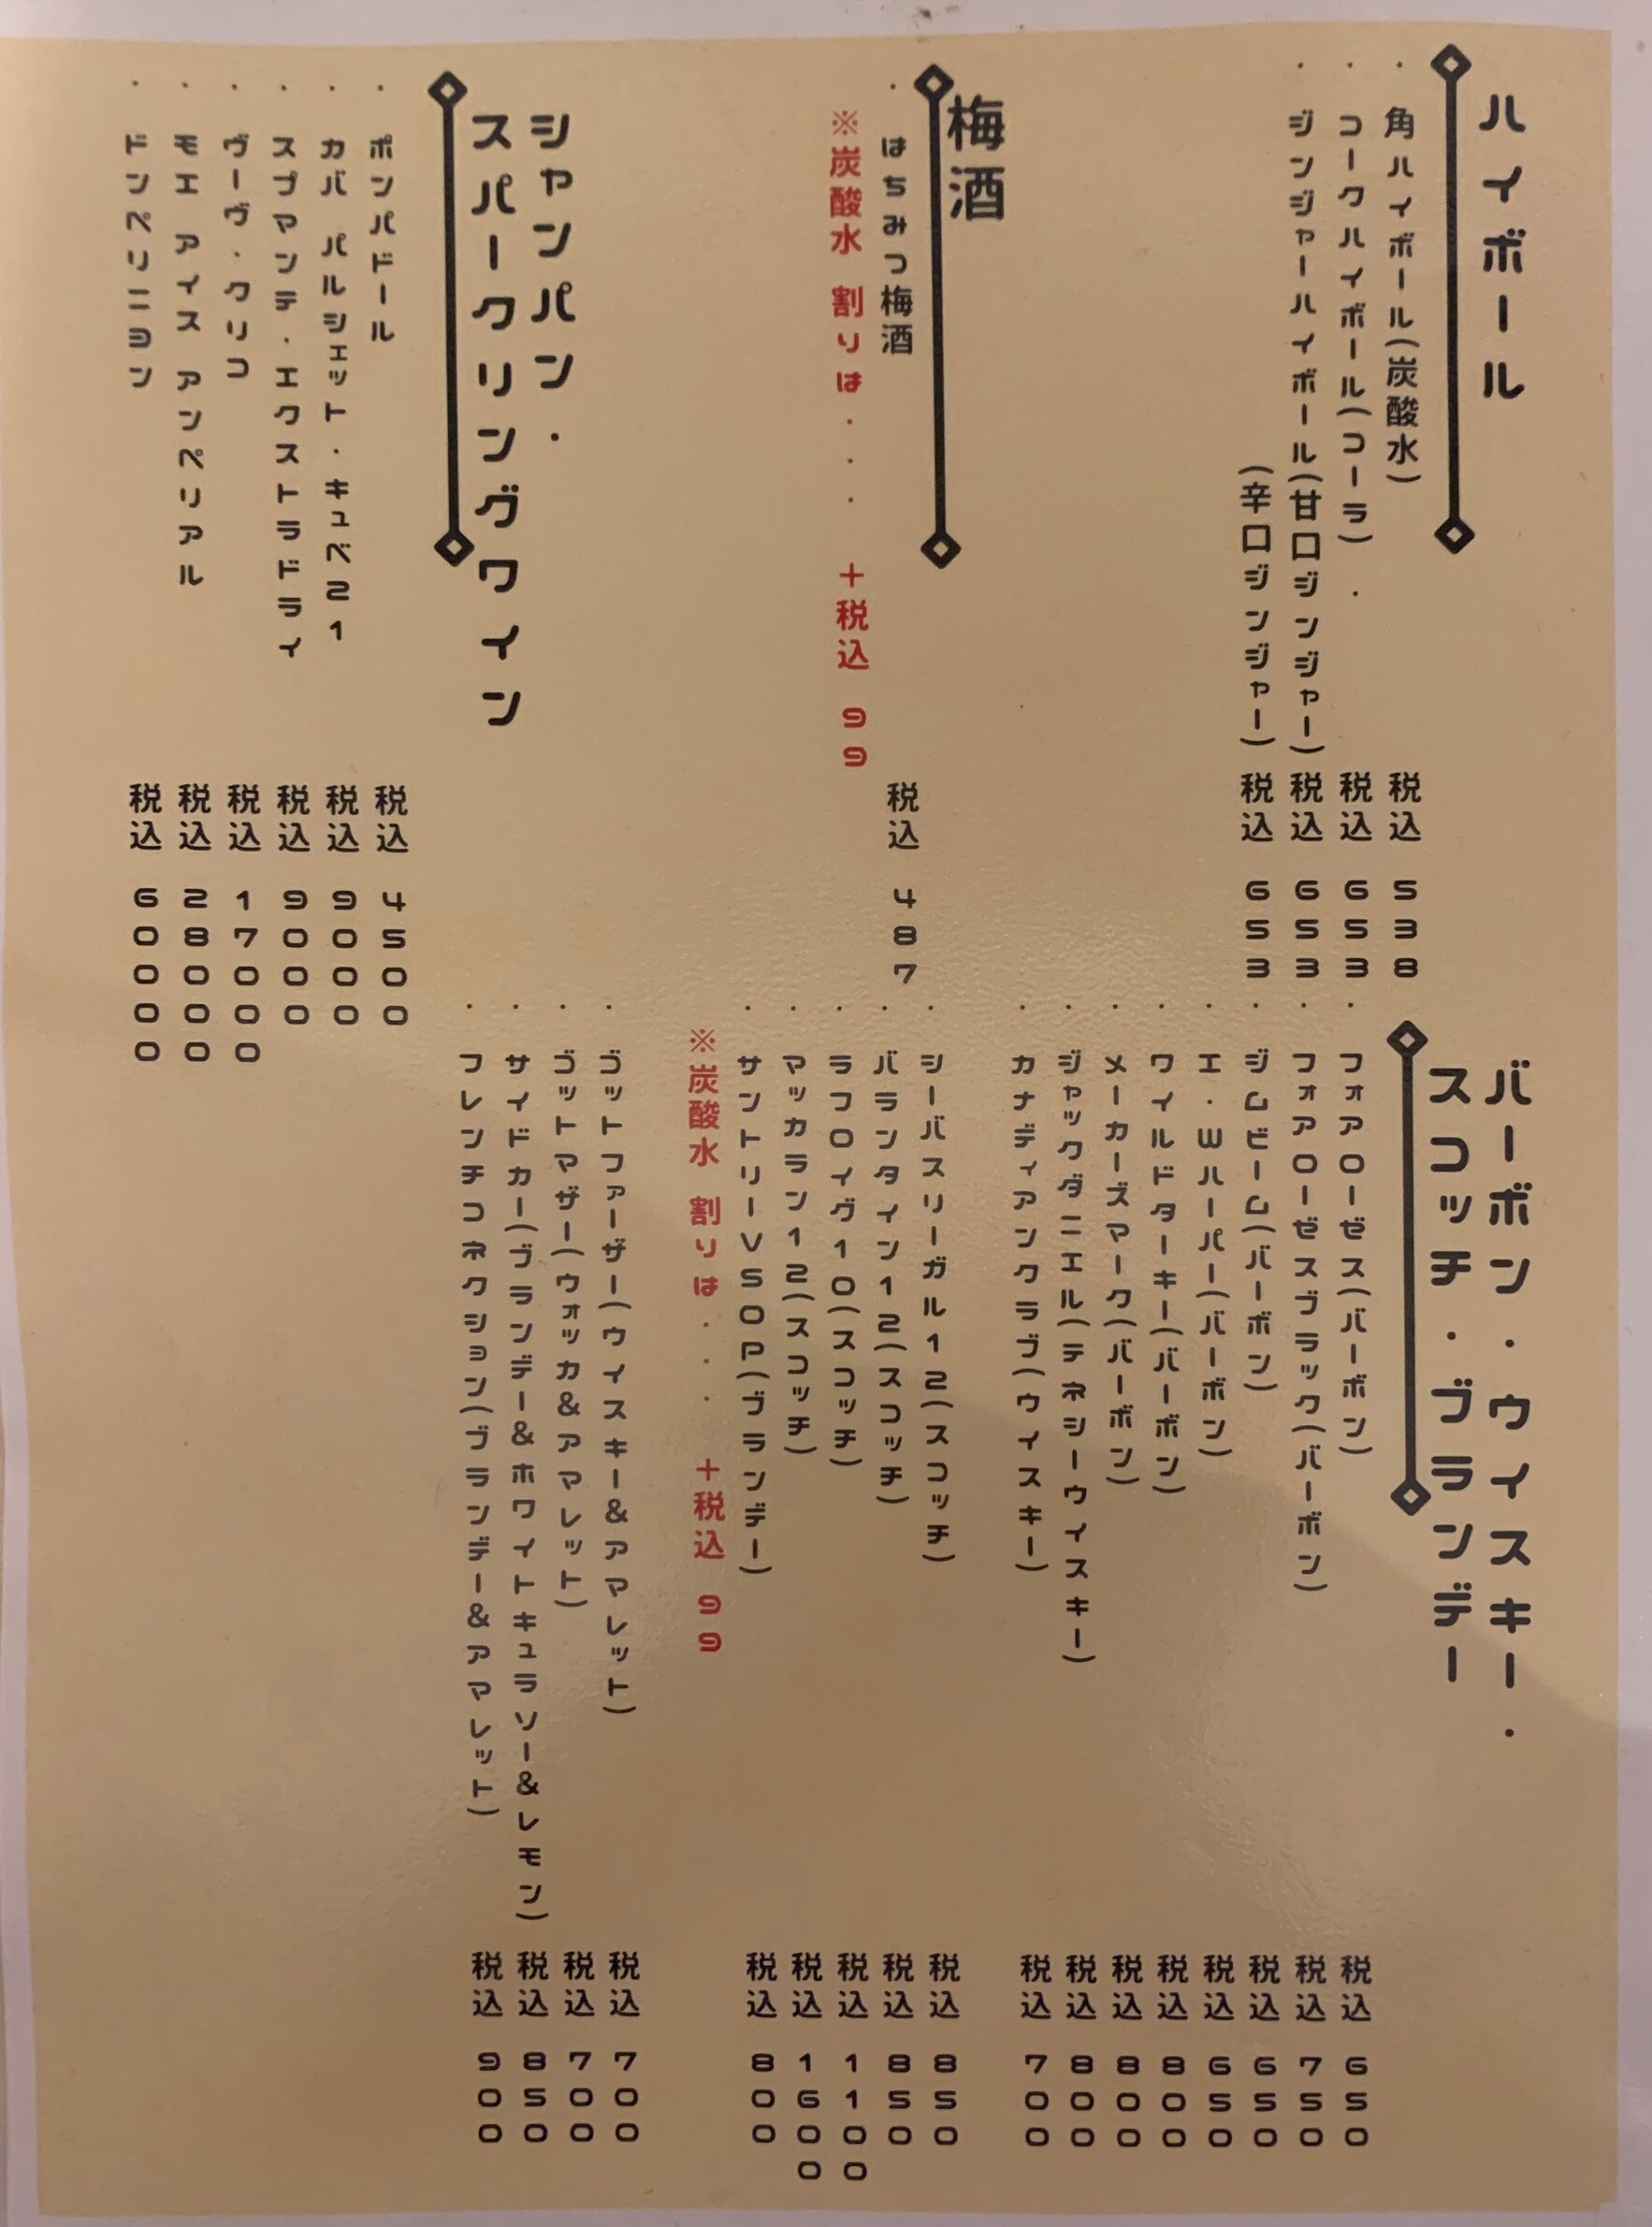 ハイボール
・角ハイボール(炭酸水) 税込 538
・コークハイボール(コーラ)・ 税込 653
・ジンジャーハイボール(甘口ジンジャー) 税込 653
(辛口ジンジャー) 税込 653
梅酒
・はちみつ梅酒 税込 487
※炭酸水 割りは・・・ +税込 99
シャンパン・
スパークリングワイン
・ポンパドール 税込 4500
・カバ パルシェット・キュベ21 税込 9000
・スプマンテ・エクストラドライ 税込 9000
・ヴーヴ・クリコ 税込 17000
・モエ アイス アンペリアル 税込 28000
・ドンペリニヨン 税込 60000
バーボン・ウイスキー・
スコッチ・ブランデー
・フォアローゼス(バーボン) 税込 650
・フォアローゼスブラック(バーボン) 税込 750
・ジムビーム(バーボン) 税込 650
・エ・Wハーパー(バーボン) 税込 650
・ワイルドターキー(バーボン) 税込 800
・メーカーズマーク(バーボン) 税込 800
・ジャックダニエル(テネシーウイスキー) 税込 800
・カナディアンクラブ(ウイスキー) 税込 700
・シーバスリーガル12(スコッチ) 税込 850
・バランタイン12(スコッチ) 税込 850
・ラフロイグ10(スコッチ) 税込 1100
・マッカラン12(スコッチ) 税込 1600
・サントリーVSOP(ブランデー) 税込 800
※炭酸水 割りは・・・ +税込 99
・ゴットファーザー(ウイスキー&アマレット) 税込 700
・ゴットマザー(ウォッカ&アマレット) 税込 700
・サイドカー(ブランデー&ホワイトキュラソー&レモン) 税込 850
・フレンチコネクション(ブランデー&アマレット) 税込 900